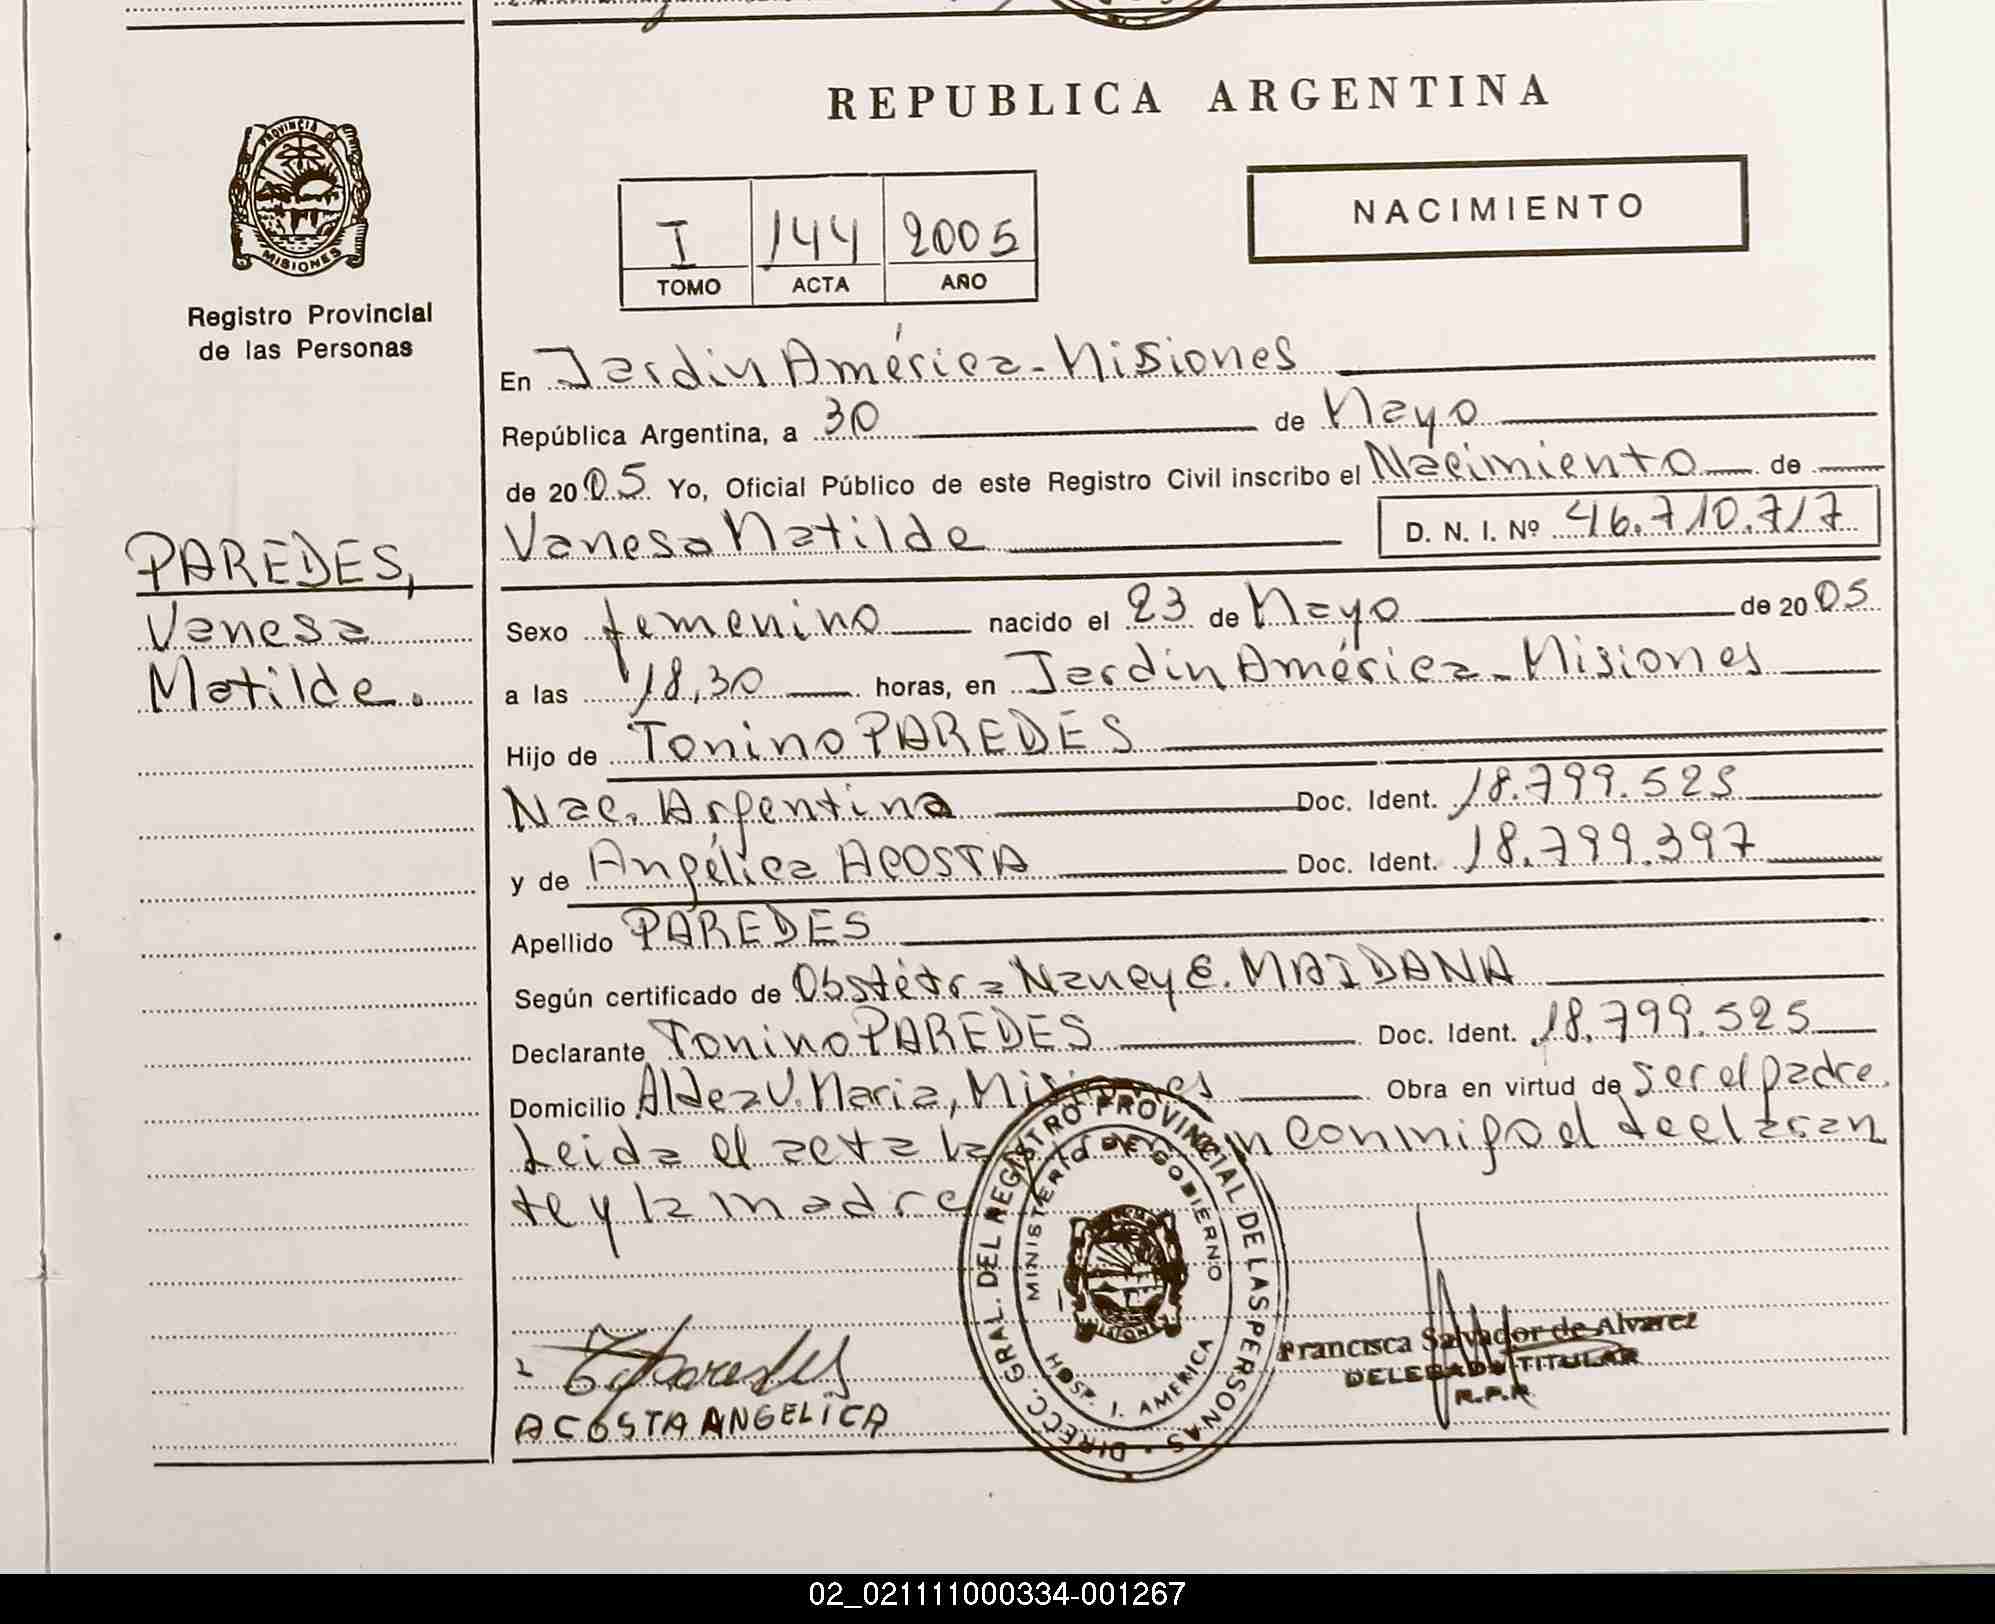 REPUBLICA ARGENTINA
PROVINCIA DE
MISIONES
Registro Provincial
de las Personas
I 144 2005
TOMO ACTA AÑO
NACIMIENTO
En Jardín América - Misiones
República Argentina, a 30 de Mayo
de 2005 Yo, Oficial Público de este Registro Civil inscribo el Nacimiento de
Vanesa Matilde D. N. I. Nº 46.710.717
PAREDES,
Vanesa
Matilde.
Sexo femenino nacido el 23 de Mayo de 2005
a las 18,30 horas, en Jardín América - Misiones
Hijo de Tonino PAREDES
Nac. Argentina Doc. Ident. 18.799.525
y de Angélica ACOSTA Doc. Ident. 18.799.397
Apellido PAREDES
Según certificado de Obstétra Nancy E. MAIDANA
Declarante Tonino PAREDES Doc. Ident. 18.799.525
Domicilio Aldea V. Maria, Misiones Obra en virtud de ser el padre.
Leida el acta la conmigo el declaran
te y la madre
DIRECC. GRAL. DEL REGISTRO PROVINCIAL DE LAS PERSONAS
MINISTERIO DE GOBIERNO
HOSP. J. AMERICA
Paredes
ACOSTA ANGELICA
Francisca Salvador de Alvarez
DELEGADO TITULAR
R.P.P.
02_021111000334-001267